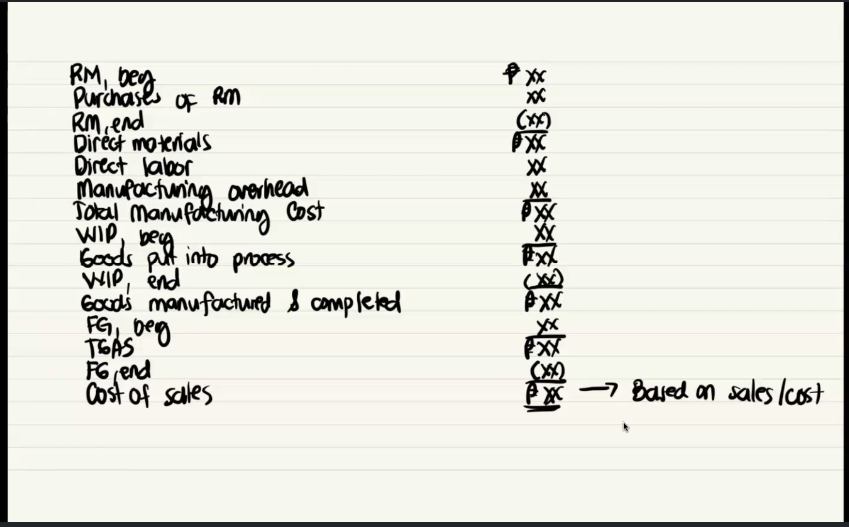 RM, beg ₱ xx
Purchases of RM xx
RM, end (xx)
Direct materials ₱ xx
Direct labor xx
Manufacturing overhead xx
Total Manufacturing Cost ₱ xx
WIP, beg xx
Goods put into process ₱ xx
WIP, end (xx)
Goods manufactured & completed ₱ xx
FG, beg xx
TGAS ₱ xx
FG, end (xx)
Cost of sales ₱ xx → Based on sales/cost